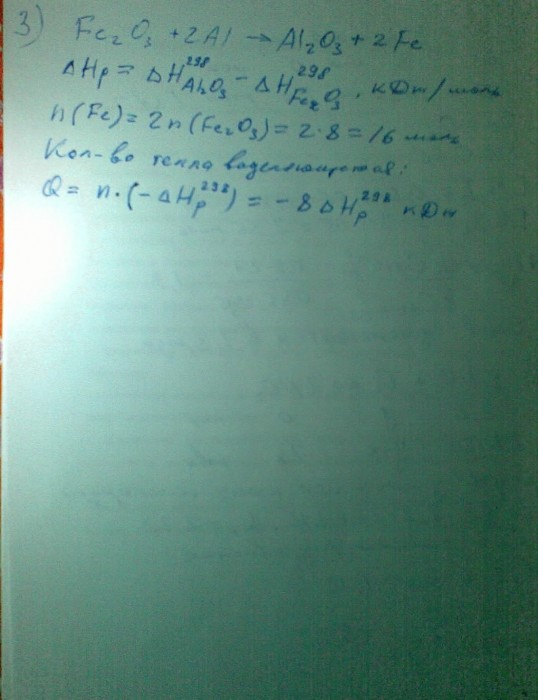 3) Fe₂O₃ + 2Al → Al₂O₃ + 2Fe
ΔHр = ΔH²⁹⁸Al₂O₃ - ΔH²⁹⁸Fe₂O₃, кДж/моль
n(Fe) = 2n(Fe₂O₃) = 2·8 = 16 моль
Кол-во тепла
Q = n·(-ΔHр²⁹⁸) = -8ΔHр²⁹⁸ кДж